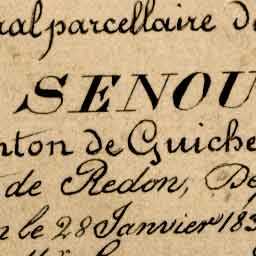 ral parcellaire de
SENOU
nton de Guiche
de Redon, Dé
le 28 Janvier 183